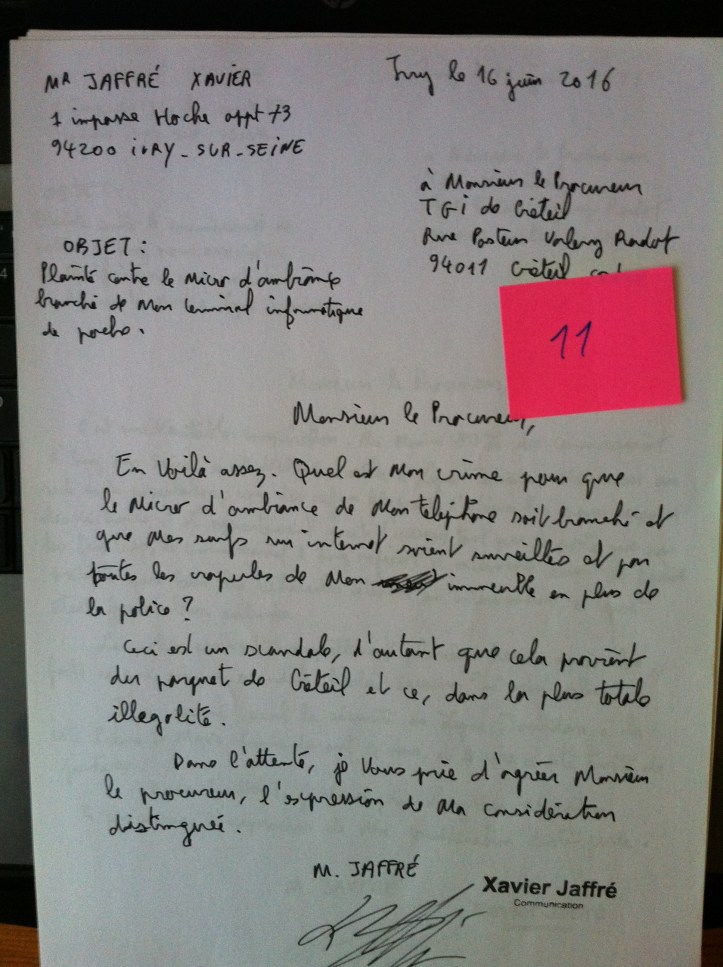 MR JAFFRÉ XAVIER
Ivry le 16 juin 2016
1 impasse Hoche appt 73
94200 iVRY_SUR_SEINE
à Monsieur le Procureur
TGi de Créteil
Rue Pasteur Valery Radot
94011 Créteil
OBJET :
Plainte contre le Micro d'ambiance
branché de Mon terminal informatique
de poche.
11
Monsieur le Procureur,
En Voilà assez. Quel est Mon crime pour que
le Micro d'ambiance de Mon téléphone soit branché et
que Mes surfs sur internet soient surveillés et par
toutes les crapules de Mon immeuble en plus de
la police ?
Ceci est un scandale, d'autant que cela provient
du parquet de Créteil et ce, dans la plus totale
illégalité.
Dans l'attente, je Vous prie d'agréer Monsieur
le procureur, l'expression de Ma considération
distinguée.
M. JAFFRÉ
Xavier Jaffré
Communication